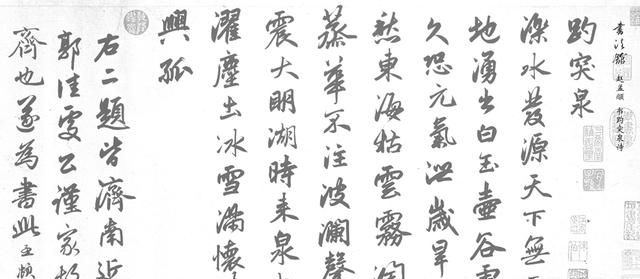 書法館
赵孟頫 书趵突泉诗
趵突泉
濼水發源天下無
地湧出白玉壺谷
久恐元氣泄歲旱
愁東海枯雲霧
蒸華不注波瀾聲
震大明湖時來泉
濯塵土冰雪滿懷
興孤
右二題皆濟南近
郭佳處公謹家
齊也遂為書此孟頫